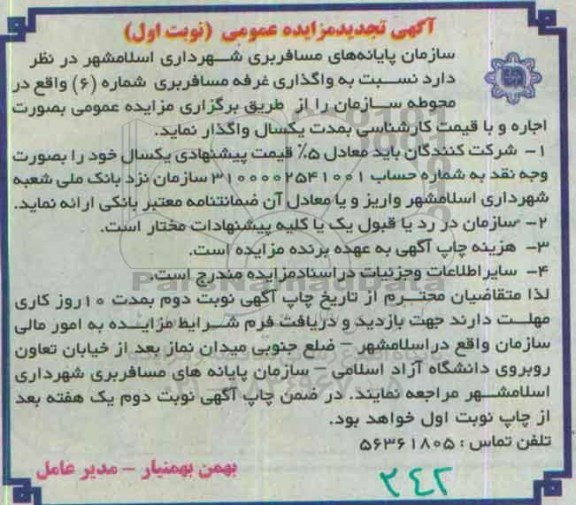 آگهی تجدیدمزایده عمومی (نوبت اول)
سازمان پایانه‌های مسافربری شهرداری اسلامشهر در نظر
دارد نسبت به واگذاری غرفه مسافربری شماره (۶) واقع در
محوطه سازمان را از طریق برگزاری مزایده عمومی بصورت
اجاره و با قیمت کارشناسی بمدت یکسال واگذار نماید.
۱- شرکت کنندگان باید معادل ۵٪ قیمت پیشنهادی یکسال خود را بصورت
وجه نقد به شماره حساب ۳۱۰۰۰۰۲۵۴۱۰۰۱ سازمان نزد بانک ملی شعبه
شهرداری اسلامشهر واریز و یا معادل آن ضمانتنامه معتبر بانکی ارائه نماید.
۲- سازمان در رد یا قبول یک یا کلیه پیشنهادات مختار است.
۳- هزینه چاپ آگهی به عهده برنده مزایده است.
ParsNamadData
۴- سایر اطلاعات وجزئیات دراسنادمزایده مندرج است.
لذا متقاضیان محترم از تاریخ چاپ آگهی نوبت دوم بمدت ۱۰ روز کاری
مهلت دارند جهت بازدید و دریافت فرم شرایط مزایده به امور مالی
سازمان واقع دراسلامشهر – ضلع جنوبی میدان نماز بعد از خیابان تعاون
روبروی دانشگاه آزاد اسلامی – سازمان پایانه های مسافربری شهرداری
اسلامشهر مراجعه نمایند. در ضمن چاپ آگهی نوبت دوم یک هفته بعد
از چاپ نوبت اول خواهد بود.
تلفن تماس : ۵۶۳۶۱۸۰۵
بهمن بهمنیار – مدیر عامل
۲۴۲